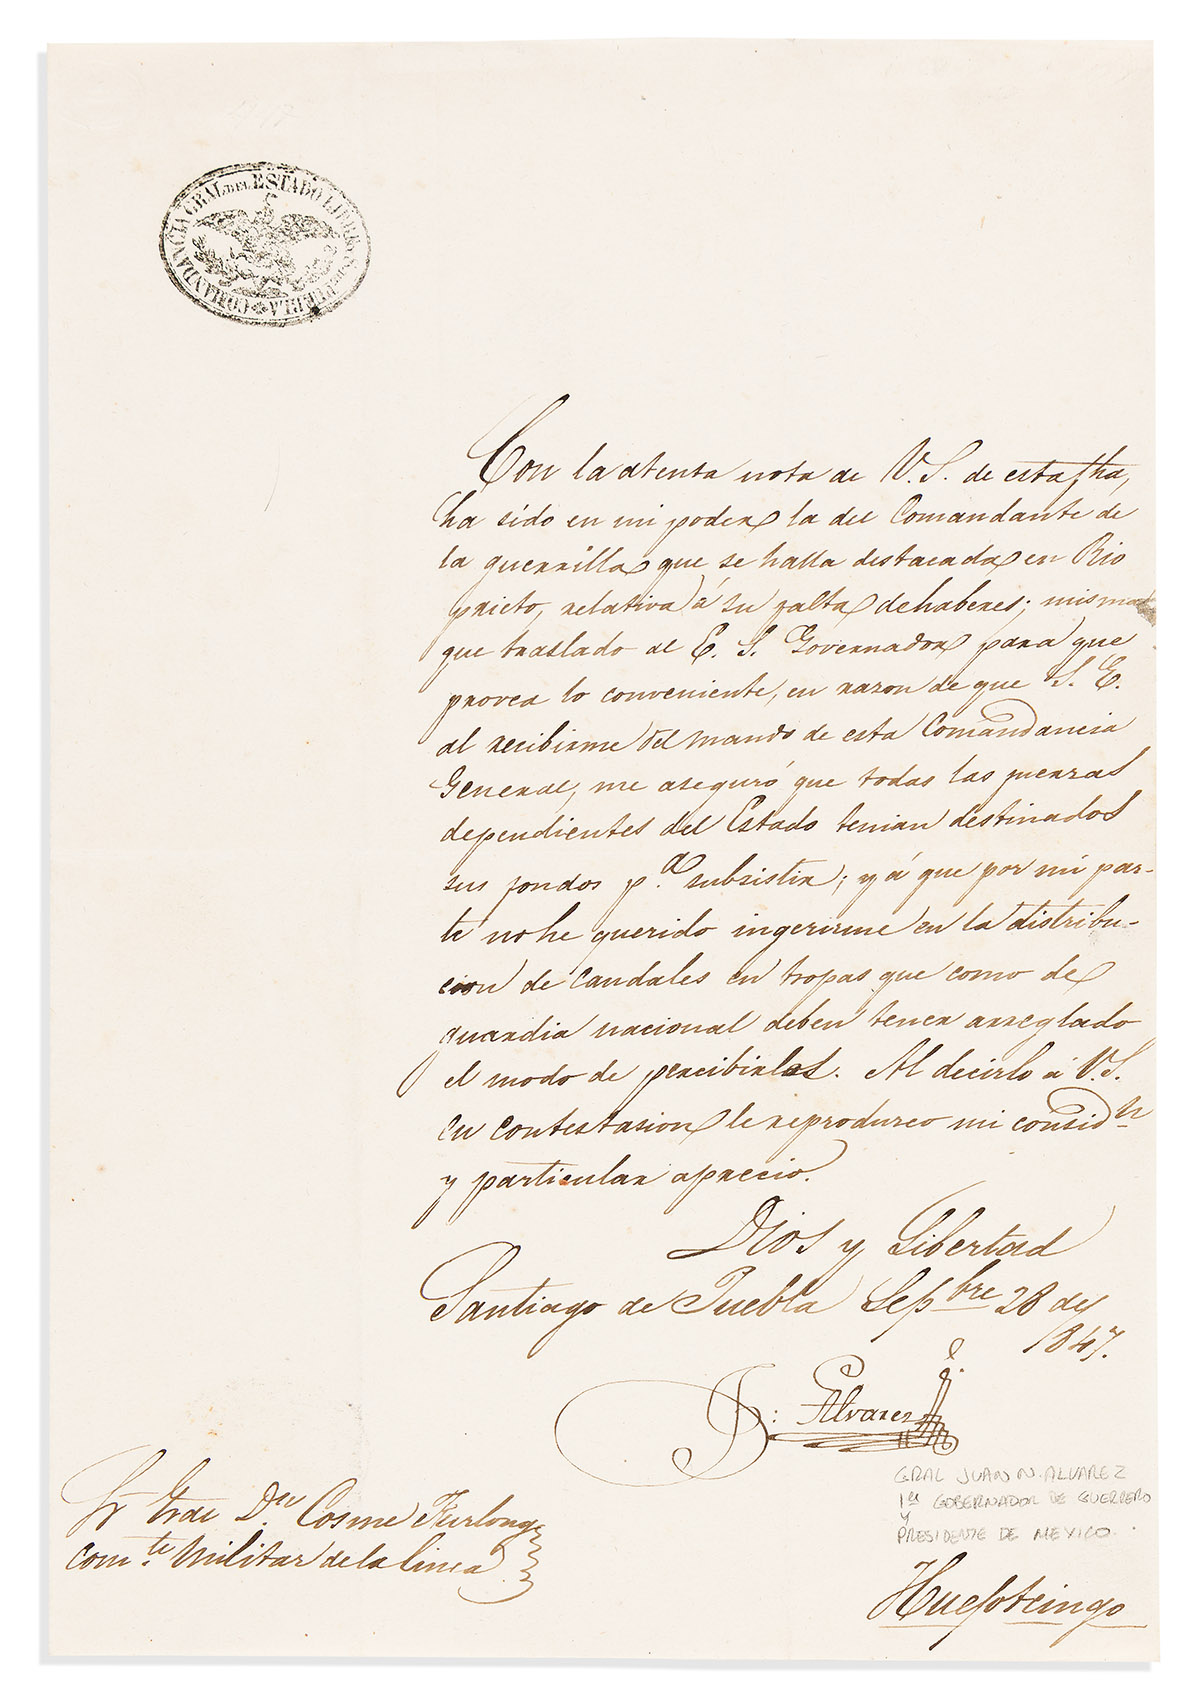 COMANDANCIA GRAL DEL ESTADO LIBRE DE PUEBLA
Con la atenta nota de V. S. de esta fha,
ha sido en mi poder la del Comandante de
la guerrilla que se halla destacada en Rio
prieto, relativa á su falta de haberes; misma
que traslado al E. S. Governador para que
provea lo conveniente, en razon de que S. E.
al recibirme del mando de esta Comandancia
General, me aseguró que todas las fuerzas
dependientes del Estado tenian destinados
sus fondos p.ª subsistir; y á que por mi par-
te no he querido ingerirme en la distribu-
cion de caudales en tropas que como de
guardia nacional deben tener arreglado
el modo de percibirlos. Al decirlo á V. S.
en contestasion le reprodusco mi considn
y particular aprecio.
Dios y Libertad
Santiago de Puebla Sepbre 28 de
1847.
J: Alvarez
GRAL JUAN N. ALVAREZ
1er GOBERNADOR DE GUERRERO
y
PRESIDENTE DE MEXICO.
Sr Gral Dn Cosme Furlong
comte Militar de la linea
Huejotcingo